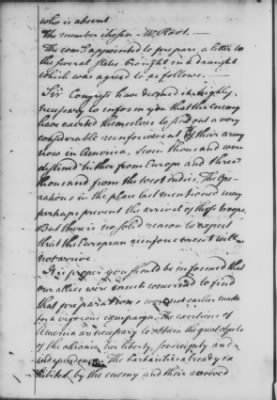 who is absent
The member chosen Mr Root.
The comee appointed to prepare a letter to
the several states brought in a draught
which was agreed to as follows.
Sir Congress have deemed it highly
necessary to inform you that the enemy
have exerted themselves to send out a very
considerable reinforcement to their army
now in America, from thousand were
destined hither from Europe and three
thousand from the west indies. The Ope-
rations in the place last mentioned may
perhaps prevent the arrival of those troops.
But there is no solid reason to expect
that the European reinforcement will
not arrive.
It is proper you should be informed that
our allies were much concerned to find
that preparations were not earlier made
for a vigorous campaign. The exertions of
America are necessary to obtain the great objects
of the alliance, her liberty, sovereignty and
independence. The barbarities already ex
hibited by the enemy and their avowed